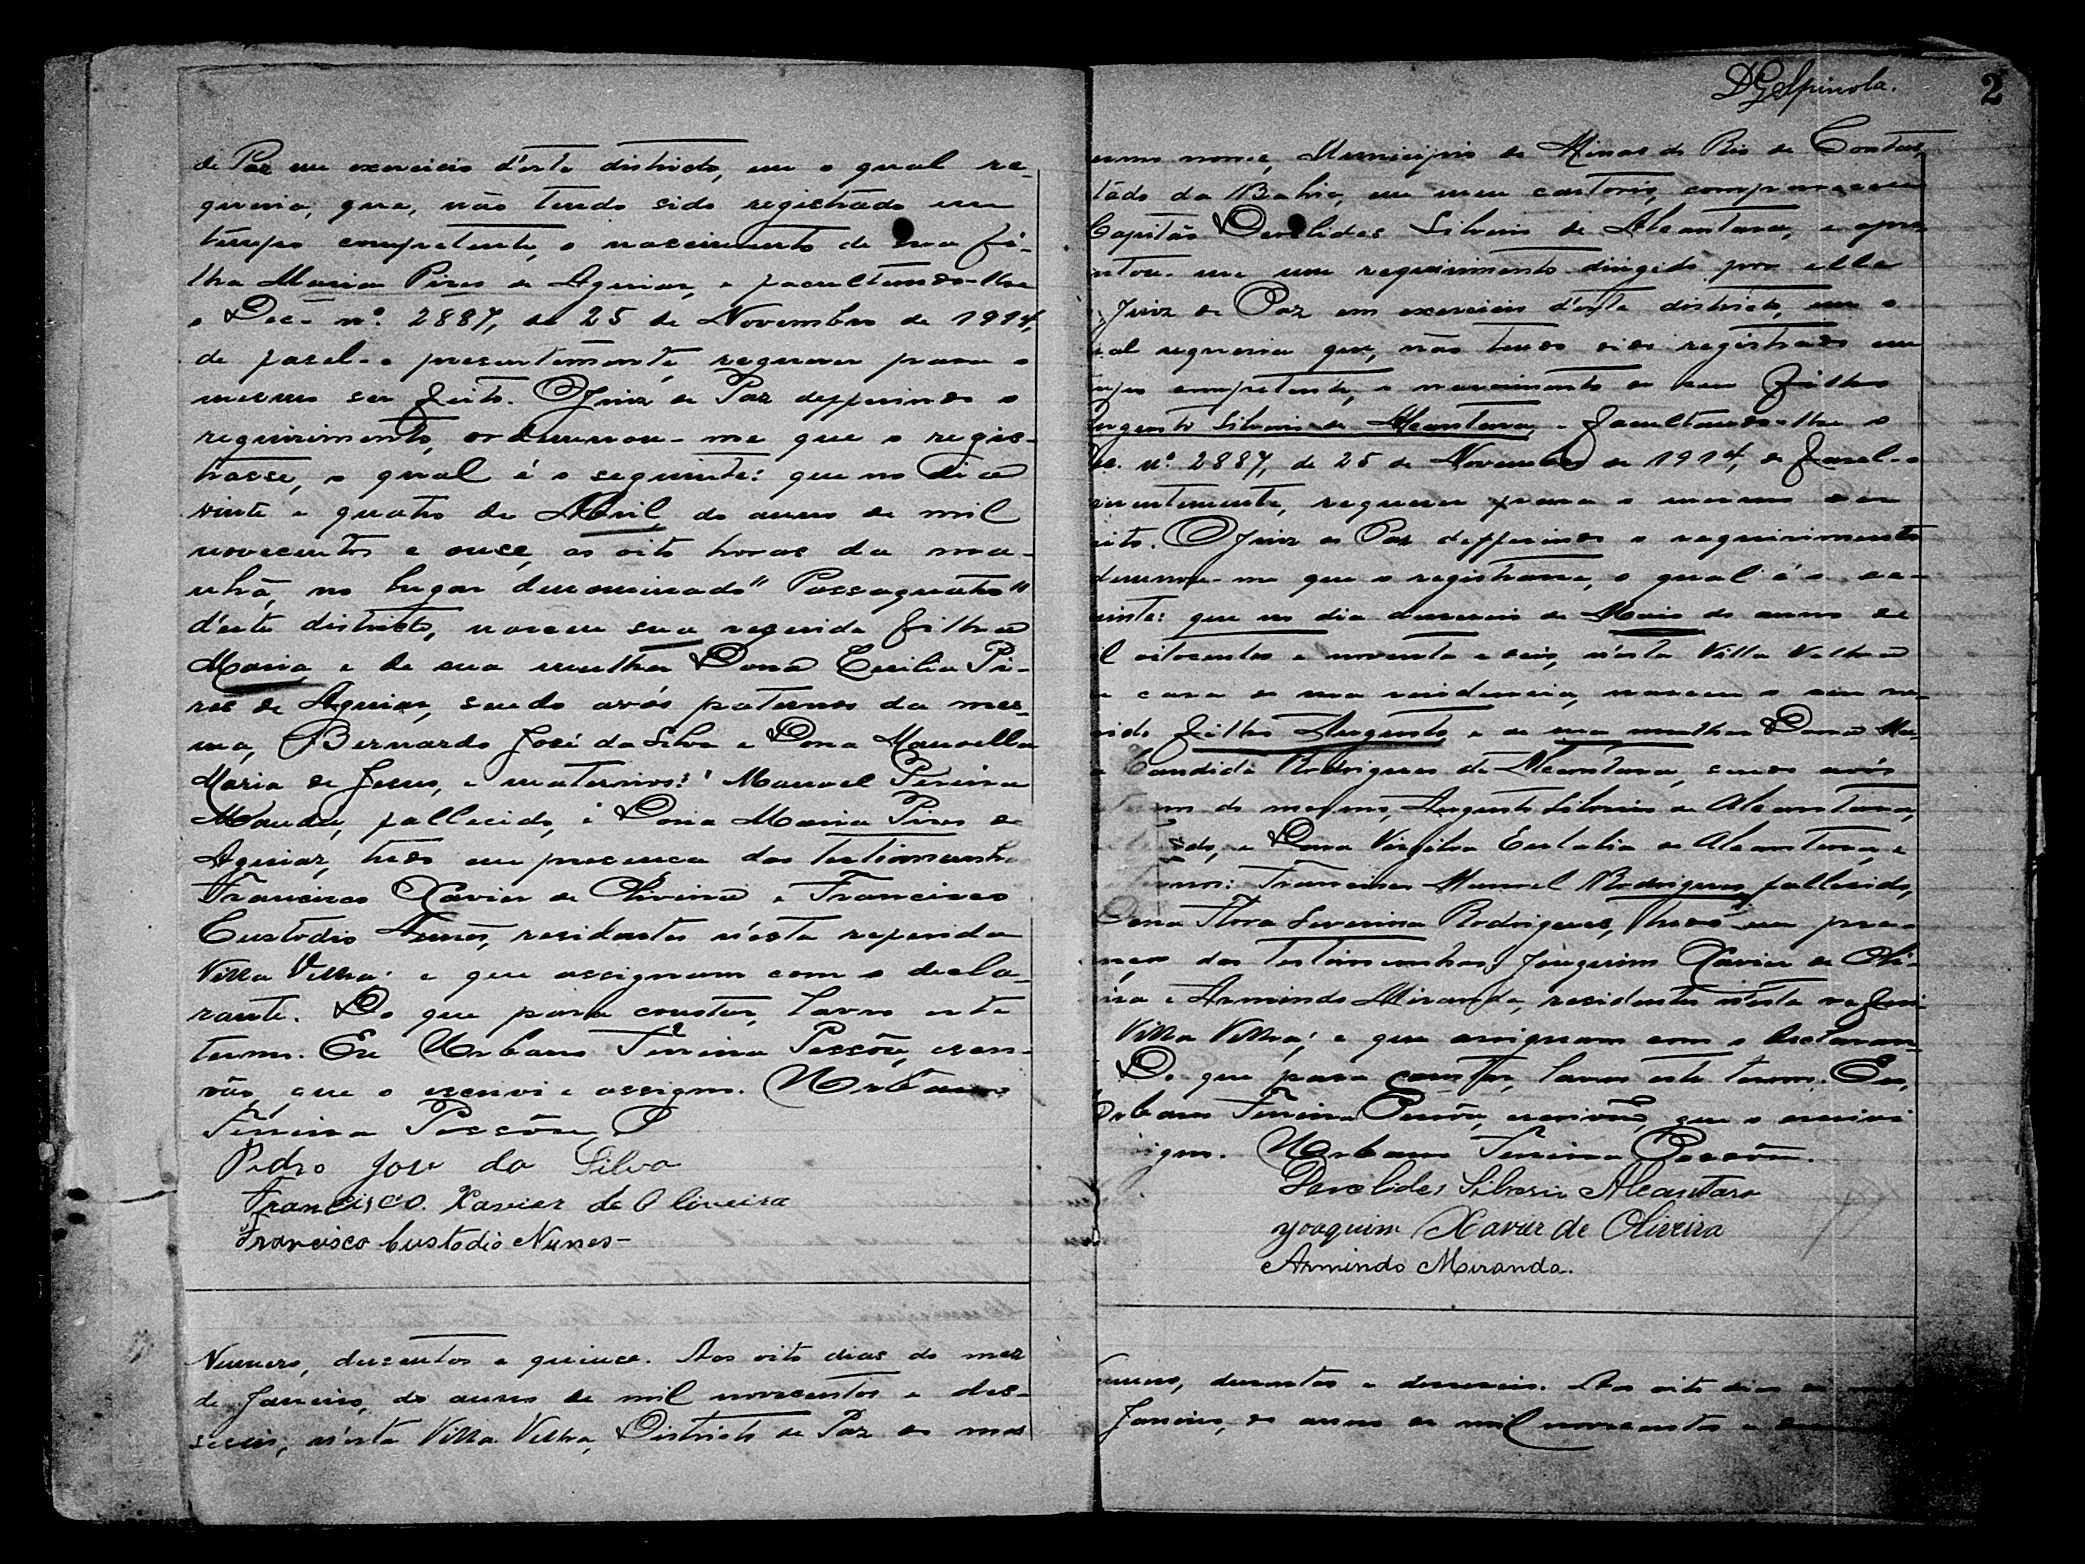 de Paz em exercicio d'este districto, em o qual re-
queria, que, não tendo sido registrado em
tempo competente, o nascimento de sua fi-
lha Maria Pires de Aguiar, e facultando-lhe
o Dec. nº. 2887, de 25 de Novembro de 1914,
de fasel-o presentemente, requerer para o
mesmo ser feito. O Juiz de Paz defferindo o
requirimento, ordennou-me que o regis-
trasse, o qual é o seguinte: que no dia
vinte e quatro de Abril do anno de mil
novecentos e onse, as oito horas da ma-
nhã, no lugar denominado "Passaquatro"
d'este districto, nasceu sua referida filha
Maria, e de sua mulher Dona Cecilia Pi-
res de Aguiar, sendo avós paternos da mes-
ma, Bernardo José da Silva e Dona Manoella
Maria de Jesus, e maternos: Manoel Pereira
fallecido, e Dona Maria Pires de
Aguiar, tudo em presença das testemunhas
Francisco Xavier de Oliveira e Francisco
Custodio Nunes, residentes n'esta referida
Villa Velha e que assignam com o decla-
rante. Do que para constar, lavro este
termo. Eu Urbano Ferreira Pessôa, escri-
vão, que o escrevi e assigno. Urbano
Ferreira Pessôa
Pedro José da Silva
Francisco Xavier de Oliveira
Francisco Custodio Nunes-
Numero, dusentos e quinse. Aos oito dias do mez
de Janeiro, do anno de mil novecentos e des-
seseis, n'esta Villa Velha, Districto de Paz do mes
DGSpinola.
2
mo nome, Municipio de Minas do Rio de Contas,
tado da Bahia, em meu cartorio, compareceu
Capitão Deoclides Silverio de Alcantara, e apre
ntou-me um requirimento dirigido por elle
Juiz de Paz em exercicio d'este districto, em o
al requeria que, não tendo sido registrado em
mpo competente, o nascimento de seu filho
Augusto Silverio de Alcantara, e facultando-lhe o
Dec. nº. 2887, de 25 de Novembro de 1914, de fasel-o
sentemente, requerer para o mesmo ser
eito. O Juiz de Paz defferindo o requirimento
dennou-me que o registrasse, o qual é o se-
uinte: que no dia deseseis de Maio do anno de
l oitocentos e noventa e seis, n'esta Villa Velha
casa de sua residencia, nasceu o seu re-
rido filho Augusto e de sua mulher Dona Ma-
Candida Rodrigues de Alcantara, sendo avós
ternos do mesmo, Augusto Silverio de Alcantara,
do, e Dona Virgilia Eulalia de Alcantara, e
ternos: Francisco Manoel Rodrigues, fallecido,
Dona Flora Severina Rodrigues, tudo em pre-
nça das testemunhas, Joaquim Xavier de Oli-
eira e Armindo Miranda, residentes n'esta referi
Villa Velha, e que assignam com o declaran-
Do que para constar, lavro este termo. Eu,
Urbano Ferreira Pessôa, escrivão, que o escrevi
signo. Urbano Ferreira Pessôa.
Deoclides Silverio Alcantara
Joaquim Xavier de Oliveira
Armindo Miranda.
Numero, dusentos e deseseis. Aos oito dias do
Janeiro, do anno de mil novecentos e